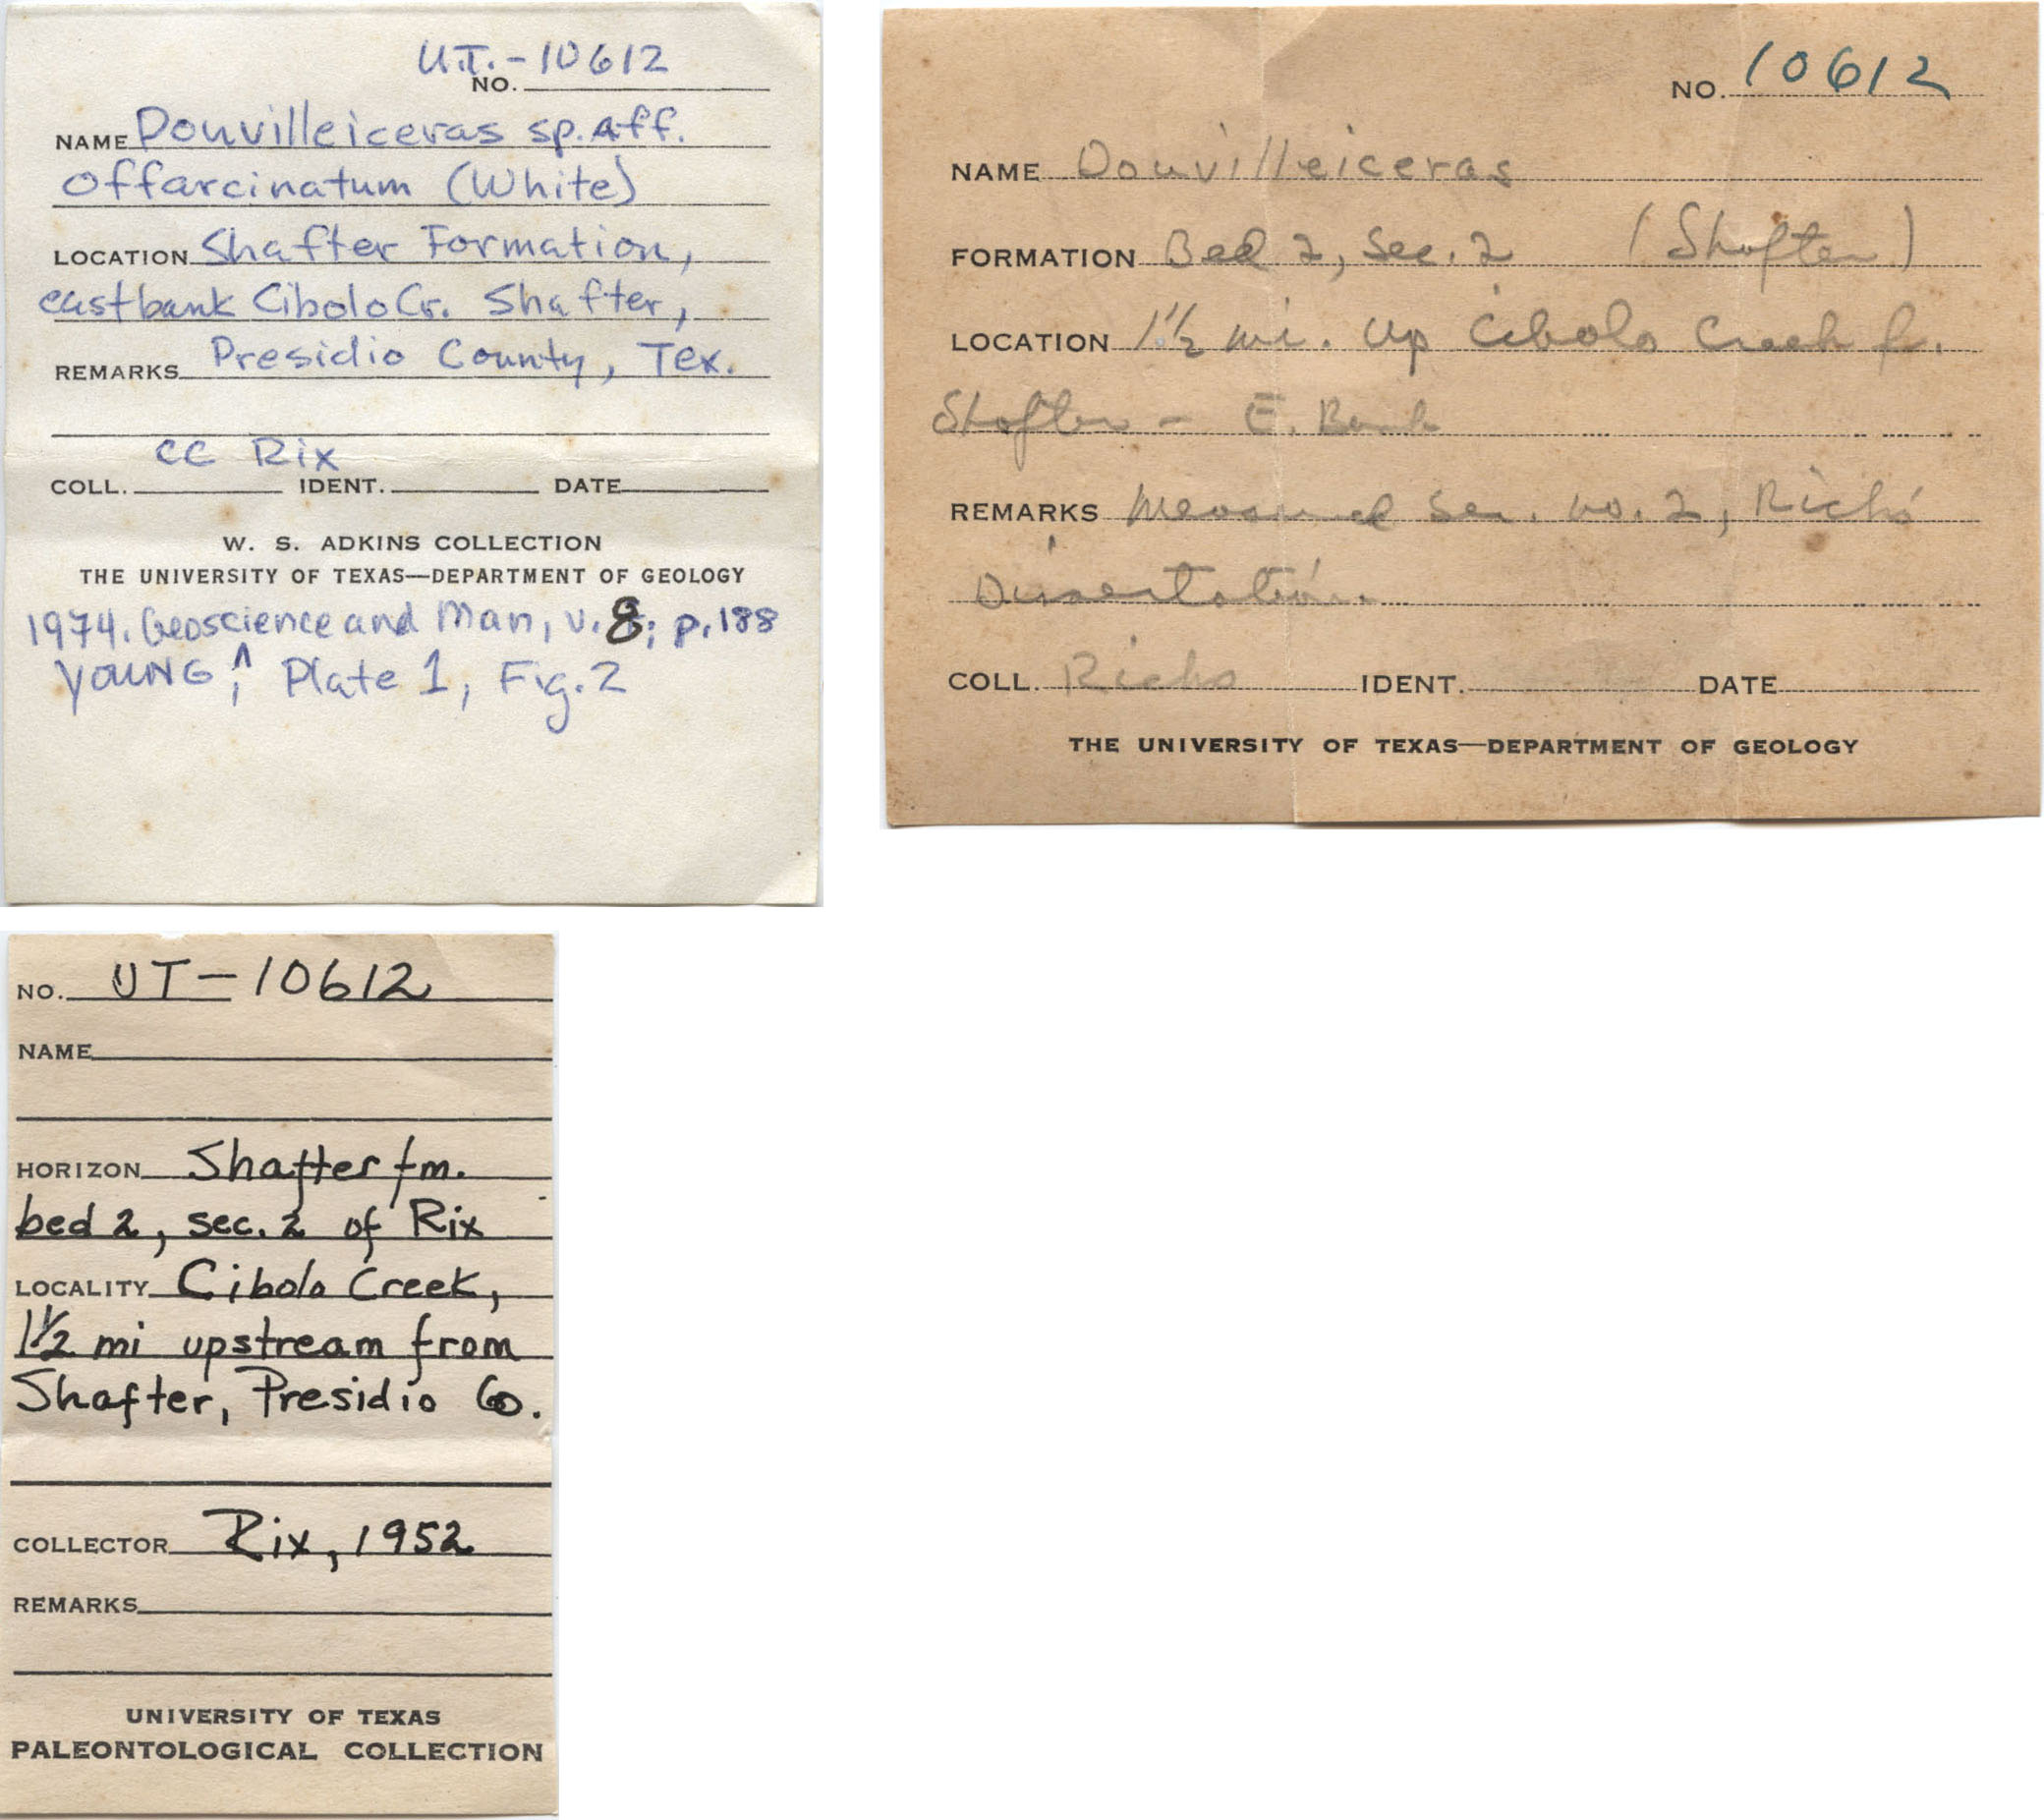 U.T.-10612
NO.
NAME Douvilleiceras sp. aff.
offarcinatum (White)
LOCATION Shafter Formation,
east bank Cibolo Cr. Shafter,
REMARKS Presidio County, Tex.
CC Rix
COLL. IDENT. DATE
W. S. ADKINS COLLECTION
THE UNIVERSITY OF TEXAS—DEPARTMENT OF GEOLOGY
1974. Geoscience and Man, v. 8; p. 188
YOUNG, ^ Plate 1, Fig. 2
NO. 10612
NAME Douvilleiceras
FORMATION Bed 2, Sec. 2 (Shafter)
LOCATION 1 1/2 mi. up Cibolo Creek fr.
Shafter - E. Bank
REMARKS Measured Sec. no. 2, Richs'
Dissertation.
COLL. Richs IDENT. DATE
THE UNIVERSITY OF TEXAS—DEPARTMENT OF GEOLOGY
NO. UT-10612
NAME
HORIZON Shafter fm.
bed 2, sec. 2 of Rix
LOCALITY Cibolo Creek,
1 1/2 mi upstream from
Shafter, Presidio Co.
COLLECTOR Rix, 1952
REMARKS
UNIVERSITY OF TEXAS
PALEONTOLOGICAL COLLECTION